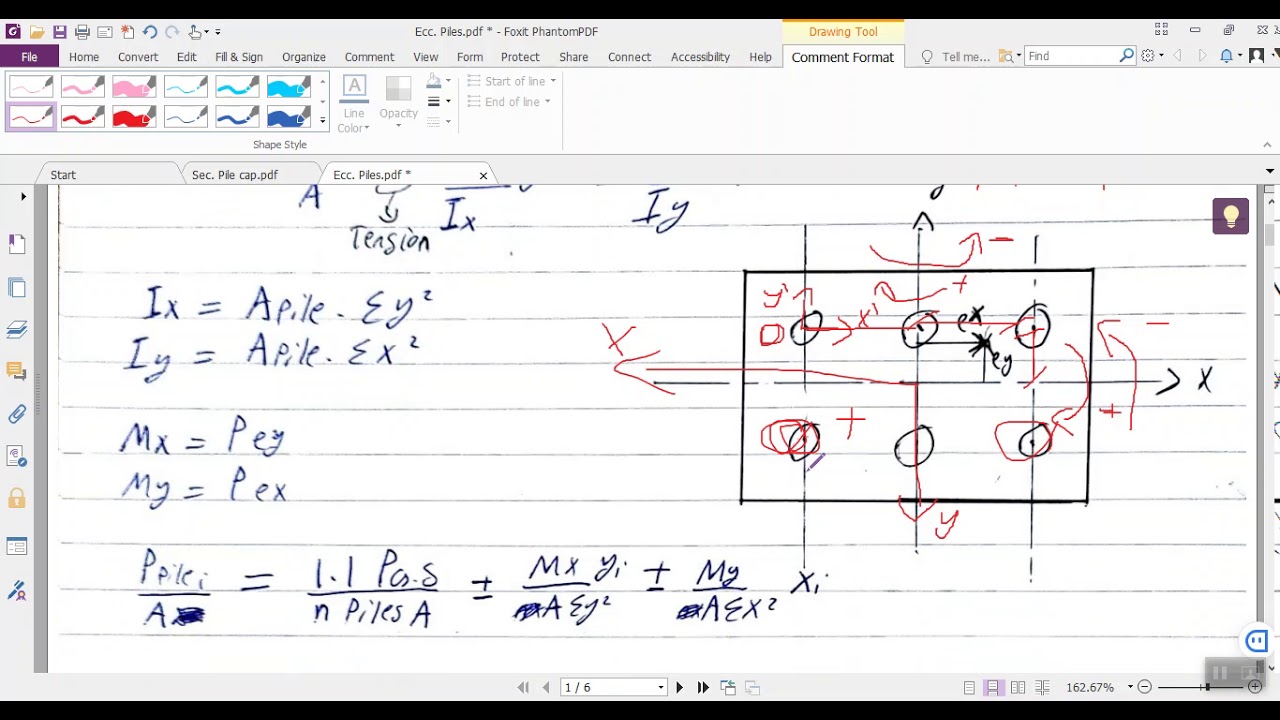 Ecc. Piles.pdf * - Foxit PhantomPDF
Drawing Tool
File Home Convert Edit Fill & Sign Organize Comment View Form Protect Share Connect Accessibility Help Comment Format Tell me... Find
Line Color
Opacity
Start of line
End of line
Shape Style
Start
Sec. Pile cap.pdf
Ecc. Piles.pdf *
A Ix Iy
Tension
Ix = Apile . Σy²
Iy = Apile . Σx²
Mx = Pey
My = Pex
Ppile i / A = 1.1 PCo.S / n Piles A ± Mx yi / A Σy² ± My / A Σx² xi
y
−
+
y'
x'
ex
ey
−
X
X
+
+
y
1 / 6
162.67%